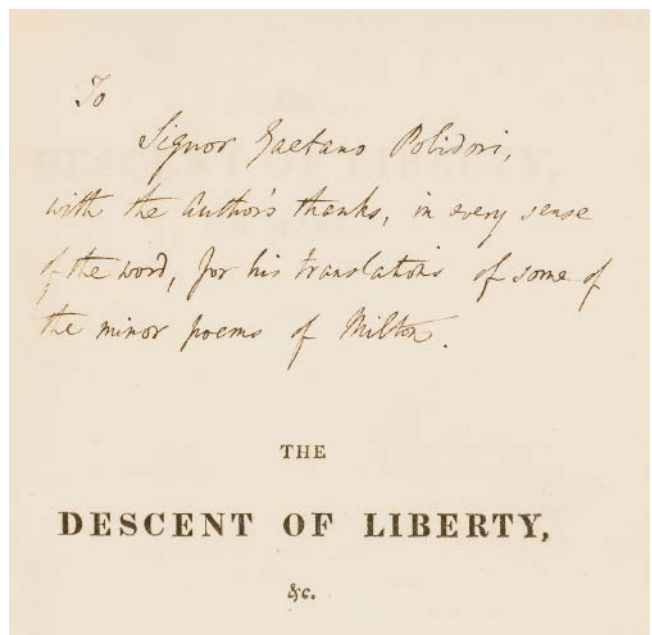 To
Signor Gaetano Polidori,
with the Author's thanks, in every sense
of the word, for his translations of some of
the minor poems of Milton.
THE
DESCENT OF LIBERTY,
&c.